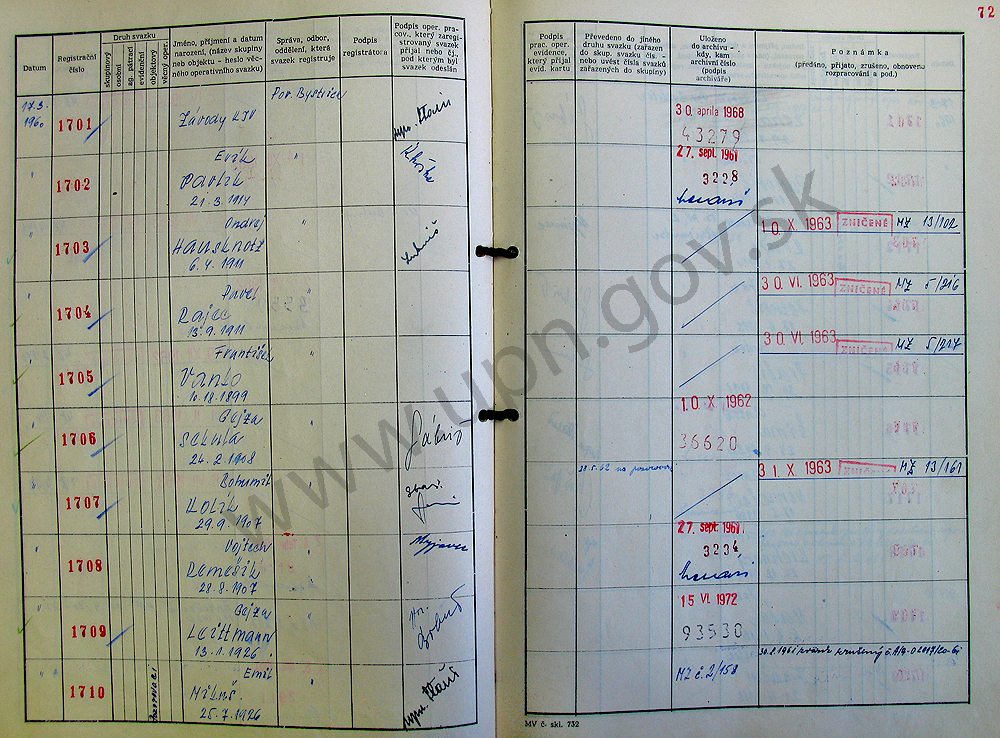 72
Datum
Registrační číslo
Druh svazku
skupinový
osobní
ag. pátrací
evidenční
objektový
věcný oper.
Jméno, příjmení a datum
narození, (název skupiny
neb objektu - heslo věc-
ného operativního svazku)
Správa, odbor,
oddělení, která
svazek registruje
Podpis
registrátora
Podpis oper. pra-
cov., který zareg-
istrovaný svazek
přijal nebo čj.,
pod kterým byl
svazek odeslán
Podpis
prac. oper.
evidence,
který přijal
evid. kartu
Převedeno do jiného
druhu svazku (zařazen
do skup. svazku čís. -
nebo uvést čísla svazků
zařazených do skupiny)
Uloženo
do archivu -
kdy, kam
archivní číslo
(podpis
archiváře)
Poznámka
(předáno, přijato, zrušeno, obnoveno
rozpracování a pod.)
17.3. 1960 1701 Závody KJV Pov. Bystrica
30 apríla 1968
43279
1702 Erik
Pavlík
21.3.1914
27. sept. 1961
322,8
1703 Ondrej
Hausknotz
6.4.1911
1 0. X 1963 ZNIČENÉ MZ 13/102
1704 Pavel
Rajec
13.9.1911
3 0. VI. 1963 ZNIČENÉ MZ 5/216
1705 František
Vanto
10.18.1899
3 0. VI. 1963 ZNIČENÉ MZ 5/217
1706 Gejza
Sekula
24.2.1908
1 0. X 1962
36620
1707 Bohumil
Kolík
29.9.1907
3 1. X 1963 ZNIČENÉ MZ 13/161
1708 Vojtech
Remešík
28.8.1907
27. sept. 1961
3234
1709 Gejza
Leittmann
13.1.1926
15 VI. 1972
93530
1710 Emil
Mituš
25.7.1926
MZ č. 2/158
MV č. skl. 732
www.upn.gov.sk